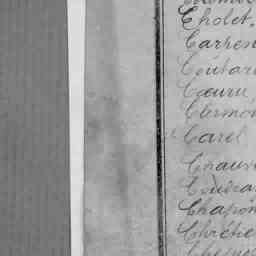 Cholet.
Carpen
Coutar
Cœuru
Clermon
Carel
Chauv
Chapon
Chrétie